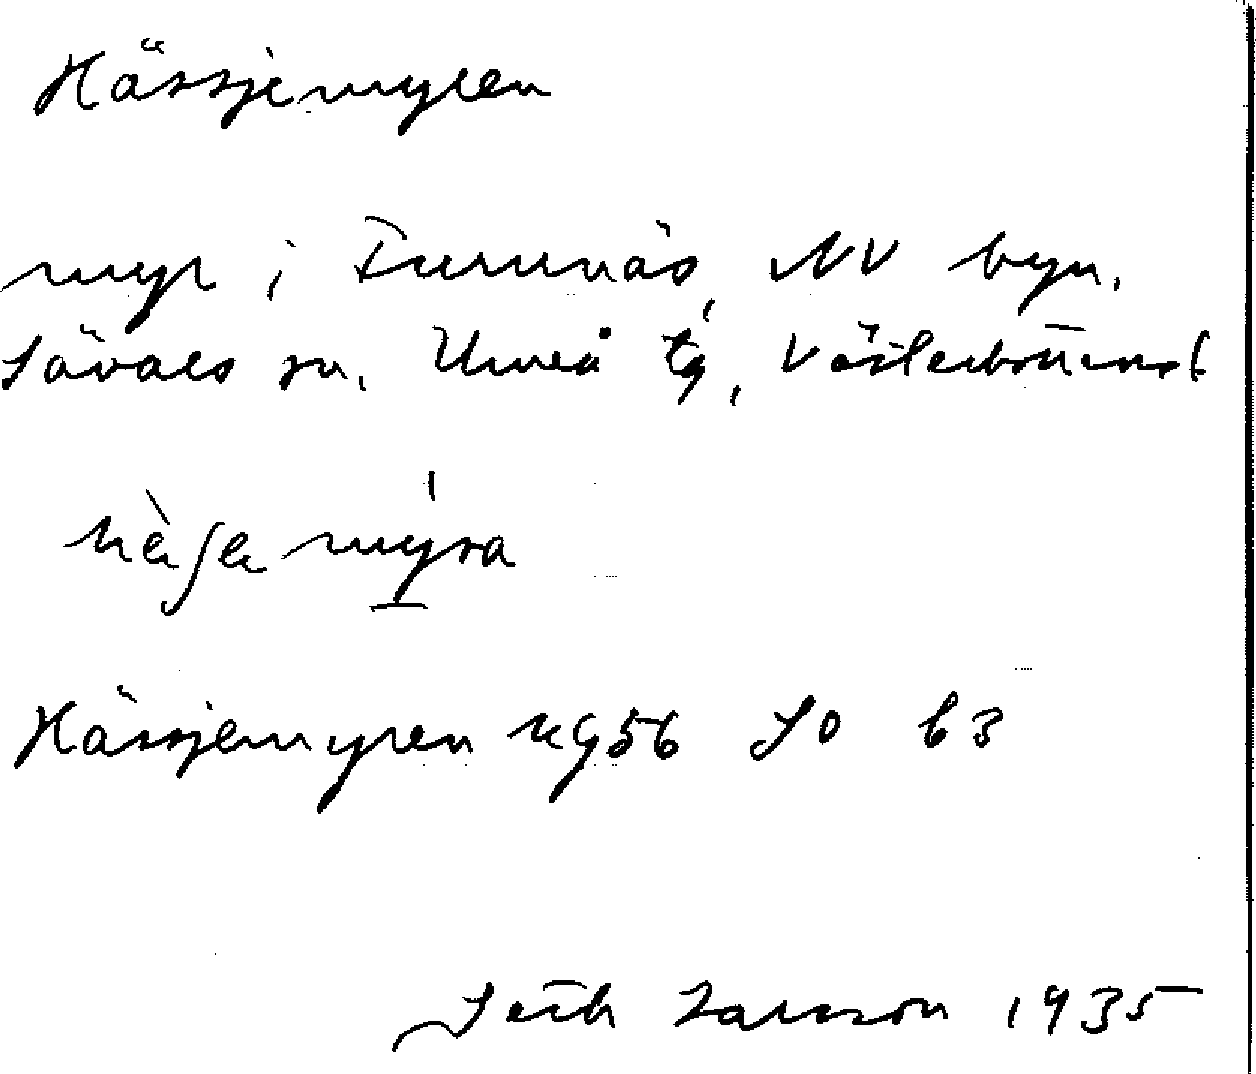 Hässjemyren
myr i Tväränäs, NV byn.
Sävars sn. Umeå tg, Västerbottensl
myra
Hässjemyren kg 56 SO b3
Seth Larsson 1935